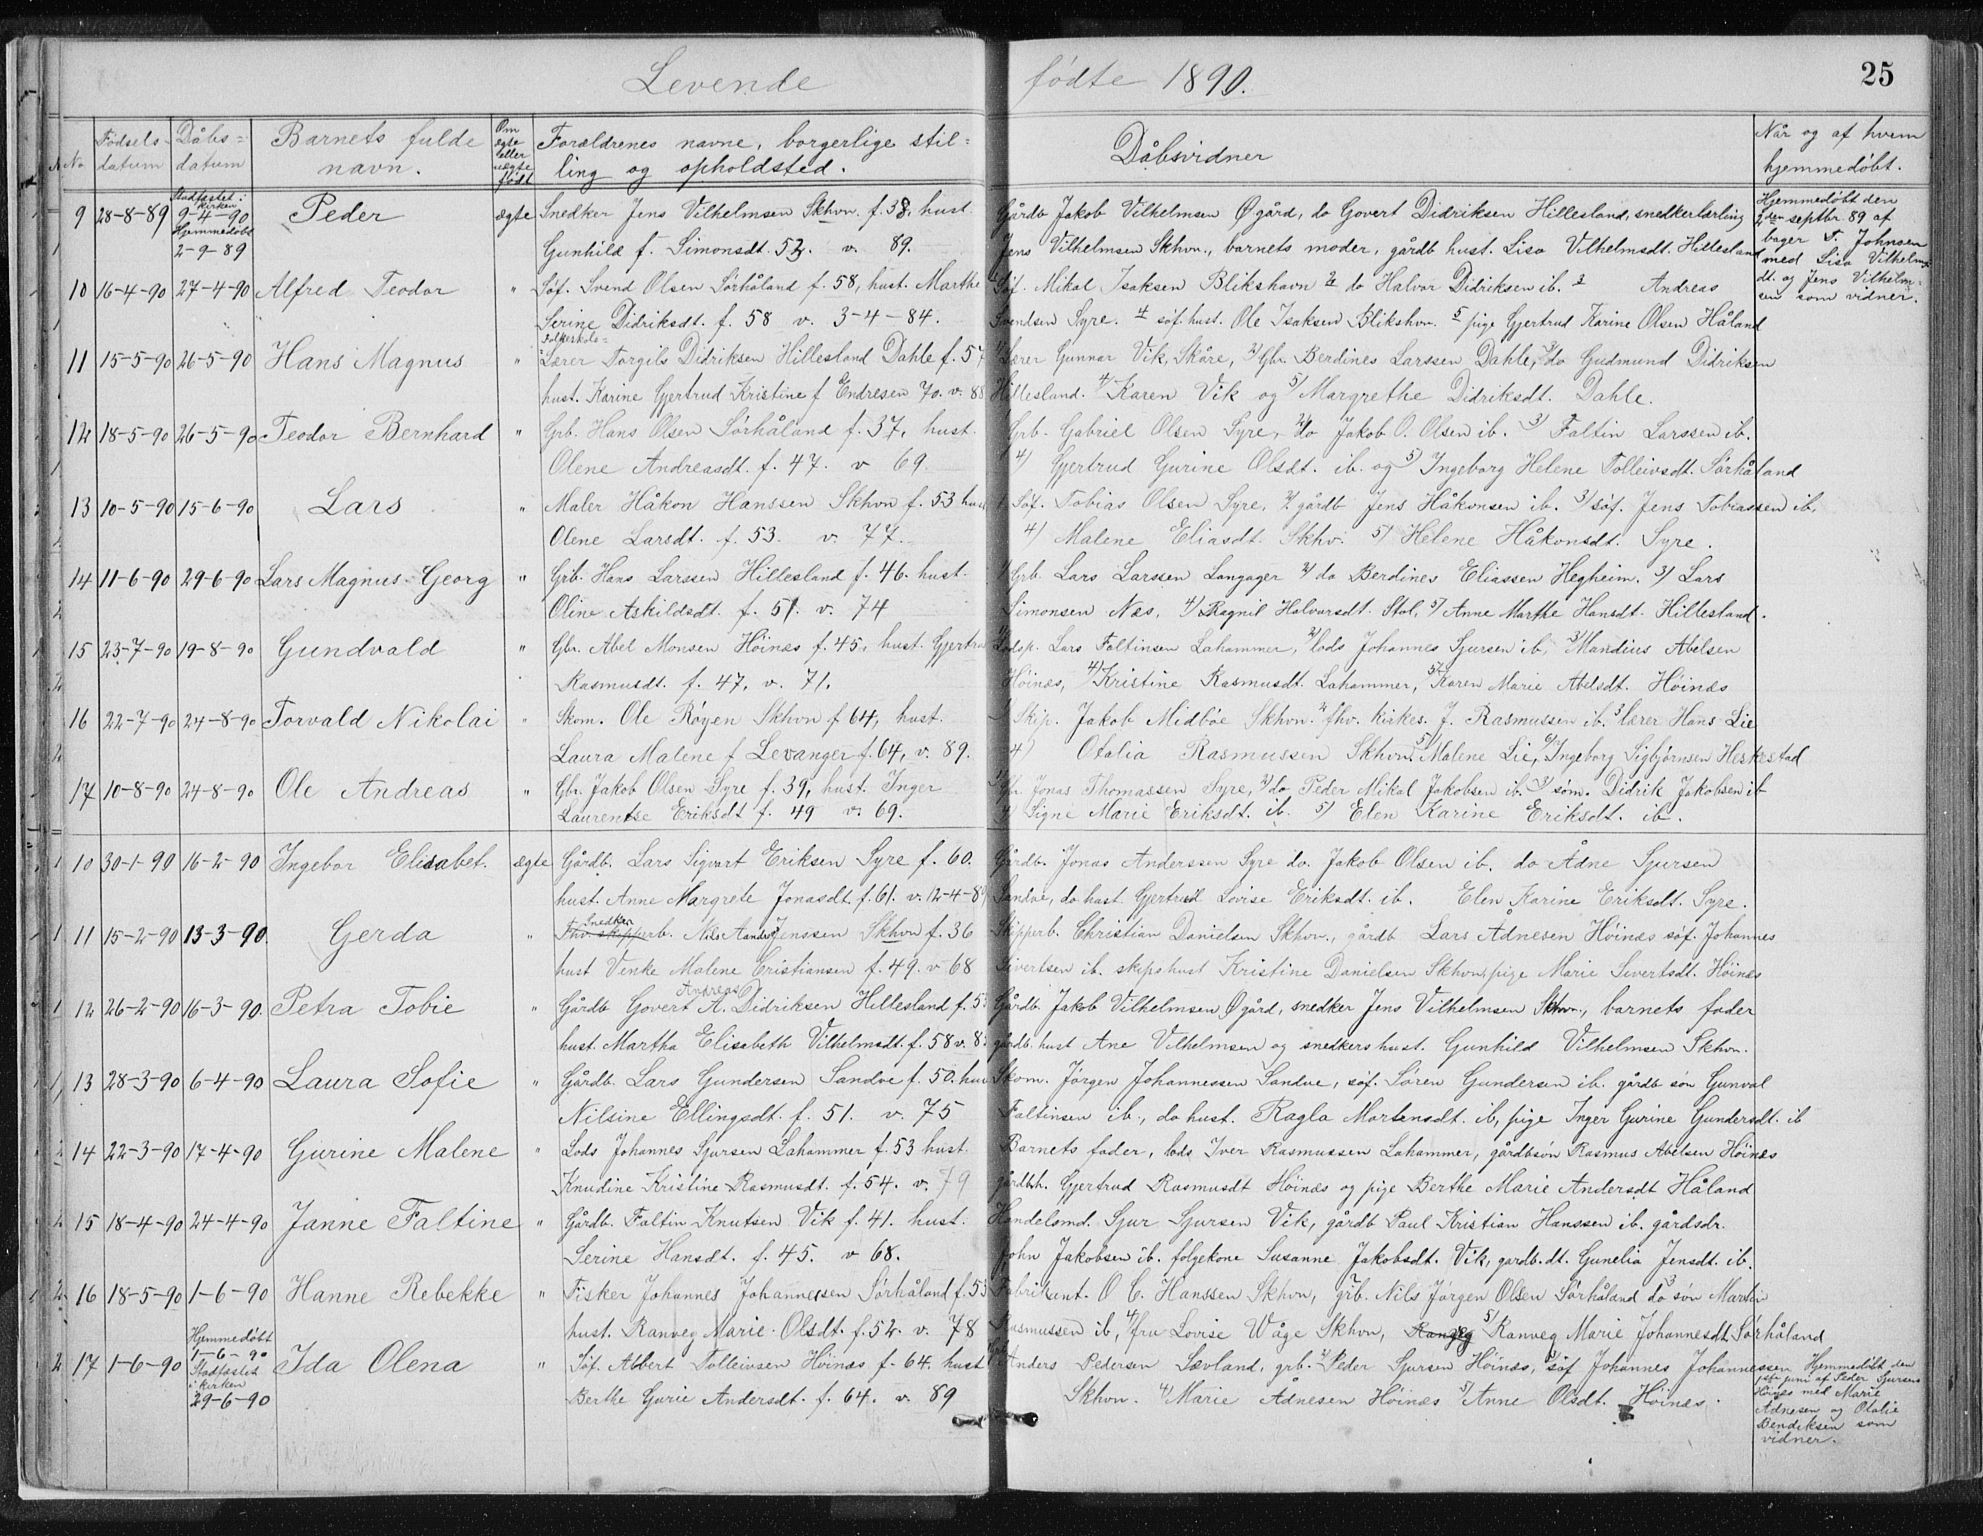 Levende fødte 1890. 25
No Fødsels-datum Dåbs-datum Barnets fulde navn. Om ægte eller uægte født Forældrenes navne, borgerlige stil- Dåbsvidner Når og af hvem
ling og opholdsted. hjemmedøbt.
9 28-8-89 Stadfæstet i kirken 9-4-90 Peder ægte Snedker Jens Vilhelmsen Skhvn. f. 38, hust. Gårdb Jakob Vilhelmsen Øgård, do Govert Didriksen Hillesland, snedkerlærling Hjemmedøbt den 2den septbr. 89 af
Hjemmedøbt 2-9-89 Gunhild f. Simonsdt. 52. v. 89. Jens Vilhelmsen Skhvn., barnets moder, gårdb hust. Lisa Vilhelmsdt. Hillesland bager T. Johnsen med Lisa Vilhelms-
10 16-4-90 27-4-90 Alfred Teodor " Søf. Svend Olsen Sørhåland f. 58, hust. Marthe Søf. Mikal Isaksen Blikshavn 2 do Halvor Didriksen ib. 3 Andreas dt. og Jens Vilhelm-sen som vidner.
Serine Didriksdt. f. 58 v. 3-4-84. Svendsen Syre. 4 søf. hust. Ole Isaksen Blikshvn. 5 pige Gjertrud Karine Olsen Håland
Folkeskole-
11 15-5-90 26-5-90 Hans Magnus " Lærer Torgils Didriksen Hillesland Dahle f. 57 Lærer Gunnar Vik, Skåre, 2/ Gbr. Berdines Larssen Dahle, 3/ do Gudmund Didriksen
hust. Karine Gjertrud Kristine f Endresen 70. v. 88 Hillesland. 4/ Karen Vik og 5/ Margrethe Didriksdt. Dahle.
12 18-5-90 26-5-90 Teodor Bernhard " Grb. Hans Olsen Sørhåland f. 37, hust. Grb. Gabriel Olsen Syre, 2/ do Jakob O. Olsen ib. 3/ Faltin Larssen ib.
Olene Andreasdt. f. 47. v 69. 4/ Gjertrud Gurine Olsdt. ib. og 5/ Ingeborg Helene Tolleivsdt. Sørhåland
13 10-5-90 15-6-90 Lars " Maler Håkon Hanssen Skhvn f. 53 hust 1 Søf. Tobias Olsen Syre, 2/ gårdb Jens Håkonsen ib. 3/ søf. Jens Tobiassen ib,
Olene Larsdt. f. 53. v. 77. 4/ Malene Eliasdt. Skhv. 5/ Helene Håkonsdt. Syre.
14 11-6-90 29-6-90 Lars Magnus Georg " Grb. Hans Larssen Hillesland f. 46. hust. 1/ Grb. Lars Larssen Langager 2/ do Berdines Eliassen Hegheim. 3/ Lars
Oline Askildsdt. f. 51. v. 74 Simonsen Næs, 4/ Ragnil Halvorsdt. Stol, 5/ Anne Marthe Hansdt. Hillesland.
15 23-7-90 19-8-90 Gundvald " Gbr. Abel Monsen Höinæs f. 45, hust. Gjertrud Lodsp. Lars Faltinsen Lahammer, 2/ lods Johannes Sjursen ib, 3/ Mandius Abelsen
Rasmusdt. f. 47, v. 71. Höinæs, 4/ Kristine Rasmusdt. Lahammer, 5/ Karen Marie Abelsdt. Höinæs
16 22-7-90 24-8-90 Torvald Nikolai " Skom. Ole Røyen Skhvn f 64, hust. Skip. Jakob Midbøe Skhvn. 2/ fhv. kirkes. J. Rasmussen ib. 3 lærer Hans Lie
Laura Malene f Levanger f. 64, v. 89. 4/ Otalia Rasmussen Skhvn. 5/ Malene Lie, 6/ Ingeborg Sigbjørnsen Heskestad
17 10-8-90 24-8-90 Ole Andreas " Gbr. Jakob Olsen Syre f. 39, hust. Inger 1/ Gbr. Jonas Thomassen Syre, 2/ do Peder Mikal Jakobsen ib. 3/ søm. Didrik Jakobsen ib
Laurentse Eriksdt f. 49 v. 69. 4/ Signe Marie Eriksdt. ib. 5/ Elen Karine Eriksdt. ib.
10 30-1-90 16-2-90 Ingebor Elisabet. ægte Gårdb. Lars Sigvart Eriksen Syre f. 60. Gårdb. Jonas Anderssen Syre do. Jakob Olsen ib. do Ådne Sjursen
hust. Anne Margrete Jonasdt. f. 61. v. 12-4-89 Sandve, do hust Gjertrud Lovise Eriksdt. ib. Elen Karine Eriksdt. Syre.
11 15-2-90 13-3-90. Gerda " Fhv. skipperb. Snedker Nils Aandes Jenssen Skhvn f. 36 Skipperb. Christian Danielsen Skhvn., gårdb Lars Ådnesen Höinæs søf. Johannes
hust Venke Malene Cristiansen f. 49. v 68 Sivertsen ib. skipshust Kristine Danielsen Skhvn, pige Marie Sivertsdt. Höinæs
12 26-2-90 16-3-90. Petra Tobie " Gårdb Govert A. Andreas Didriksen Hillesland f. 53 Gårdb. Jakob Vilhelmsen Øgård, snedker Jens Vilhelmsen Skhvn., barnets fader
hust. Martha Elisabeth Vilhelmsdt. f. 58 v. 8 gårdb. hust Ane Vilhelmsen og snedkershust. Gunhild Vilhelmsen Skhvn.
13 28-3-90 6-4-90 Laura Sofie " Gårdb. Lars Gundersen Sandve f. 50. hust Skom. Jørgen Johannessen Sandve, søf. Søren Gundersen ib. gårdb søn Gunvol
Nilsine Ellingsdt. f. 51. v. 75 Faltinsen ib., do hust. Ragla Mortensdt. ib, pige Inger Gurine Gundersdt. ib
14 22-3-90 17-4-90 Gurine Malene " Lods Johannes Sjursen Lahammer f. 53 hust. Barnets fader, lods Iver Rasmussen Lahammer, gårdbsön Rasmus Abelsen Höinæs
Knudine Kristine Rasmusdt. f. 54. v. 79 gårdbh. Gjertrud Rasmusdt Höinæs og pige Berthe Marie Andersdt Håland
15 18-4-90 24-4-90 Janne Faltine " Gårdb. Faltin Knutsen Vik f. 41. hust. Handelsmd. Sjur Sjursen Vik, gårdb Paul Kristian Hanssen ib. gårdsdr.
Serine Hansdt. f. 45. v 68. John Jakobsen ib. folgekone Susanne Jakobsdt. Vik, gardb. dt. Gunelia Jensdt. ib.
16 18-5-90 1-6-90 Hanne Rebekke " Fisker Johannes Johannessen Sørhåland f. 53 Fabrikant. O C. Hanssen Skhvn, 2 grb. Nils Jörgen Olsen Sørhåland 3 do sön Martin
hust. Ranveg Marie Olsdt. f. 52. v. 78 Rasmussen ib, 4/ fru Lovise Wåge Skhvn, 5/ Ranveg Marie Johannesdt. Sørhåland
17 1-6-90 Hjemmedøbt 1-6-90 Stadfæstet i kirken 29-6-90 Ida Olena " Søf. Albert Tolleivsen Höinæs f. 64. hust Anders Pedersen Sævland, grb. 2/ Peder Sjursen Höinæs, 3/ søf Johannes Johannessen Hjemmedøbt den 1ste juni af Peder Sjursens
Berthe Gurie Andersdt. f. 64. v. 89 Skhvn. 4/ Marie Ådnesen Höinæs 5/ Anne Olsdt. Höinæs. Höinæs med Marie Adnesen og Otalie Bendiksen som vidner.